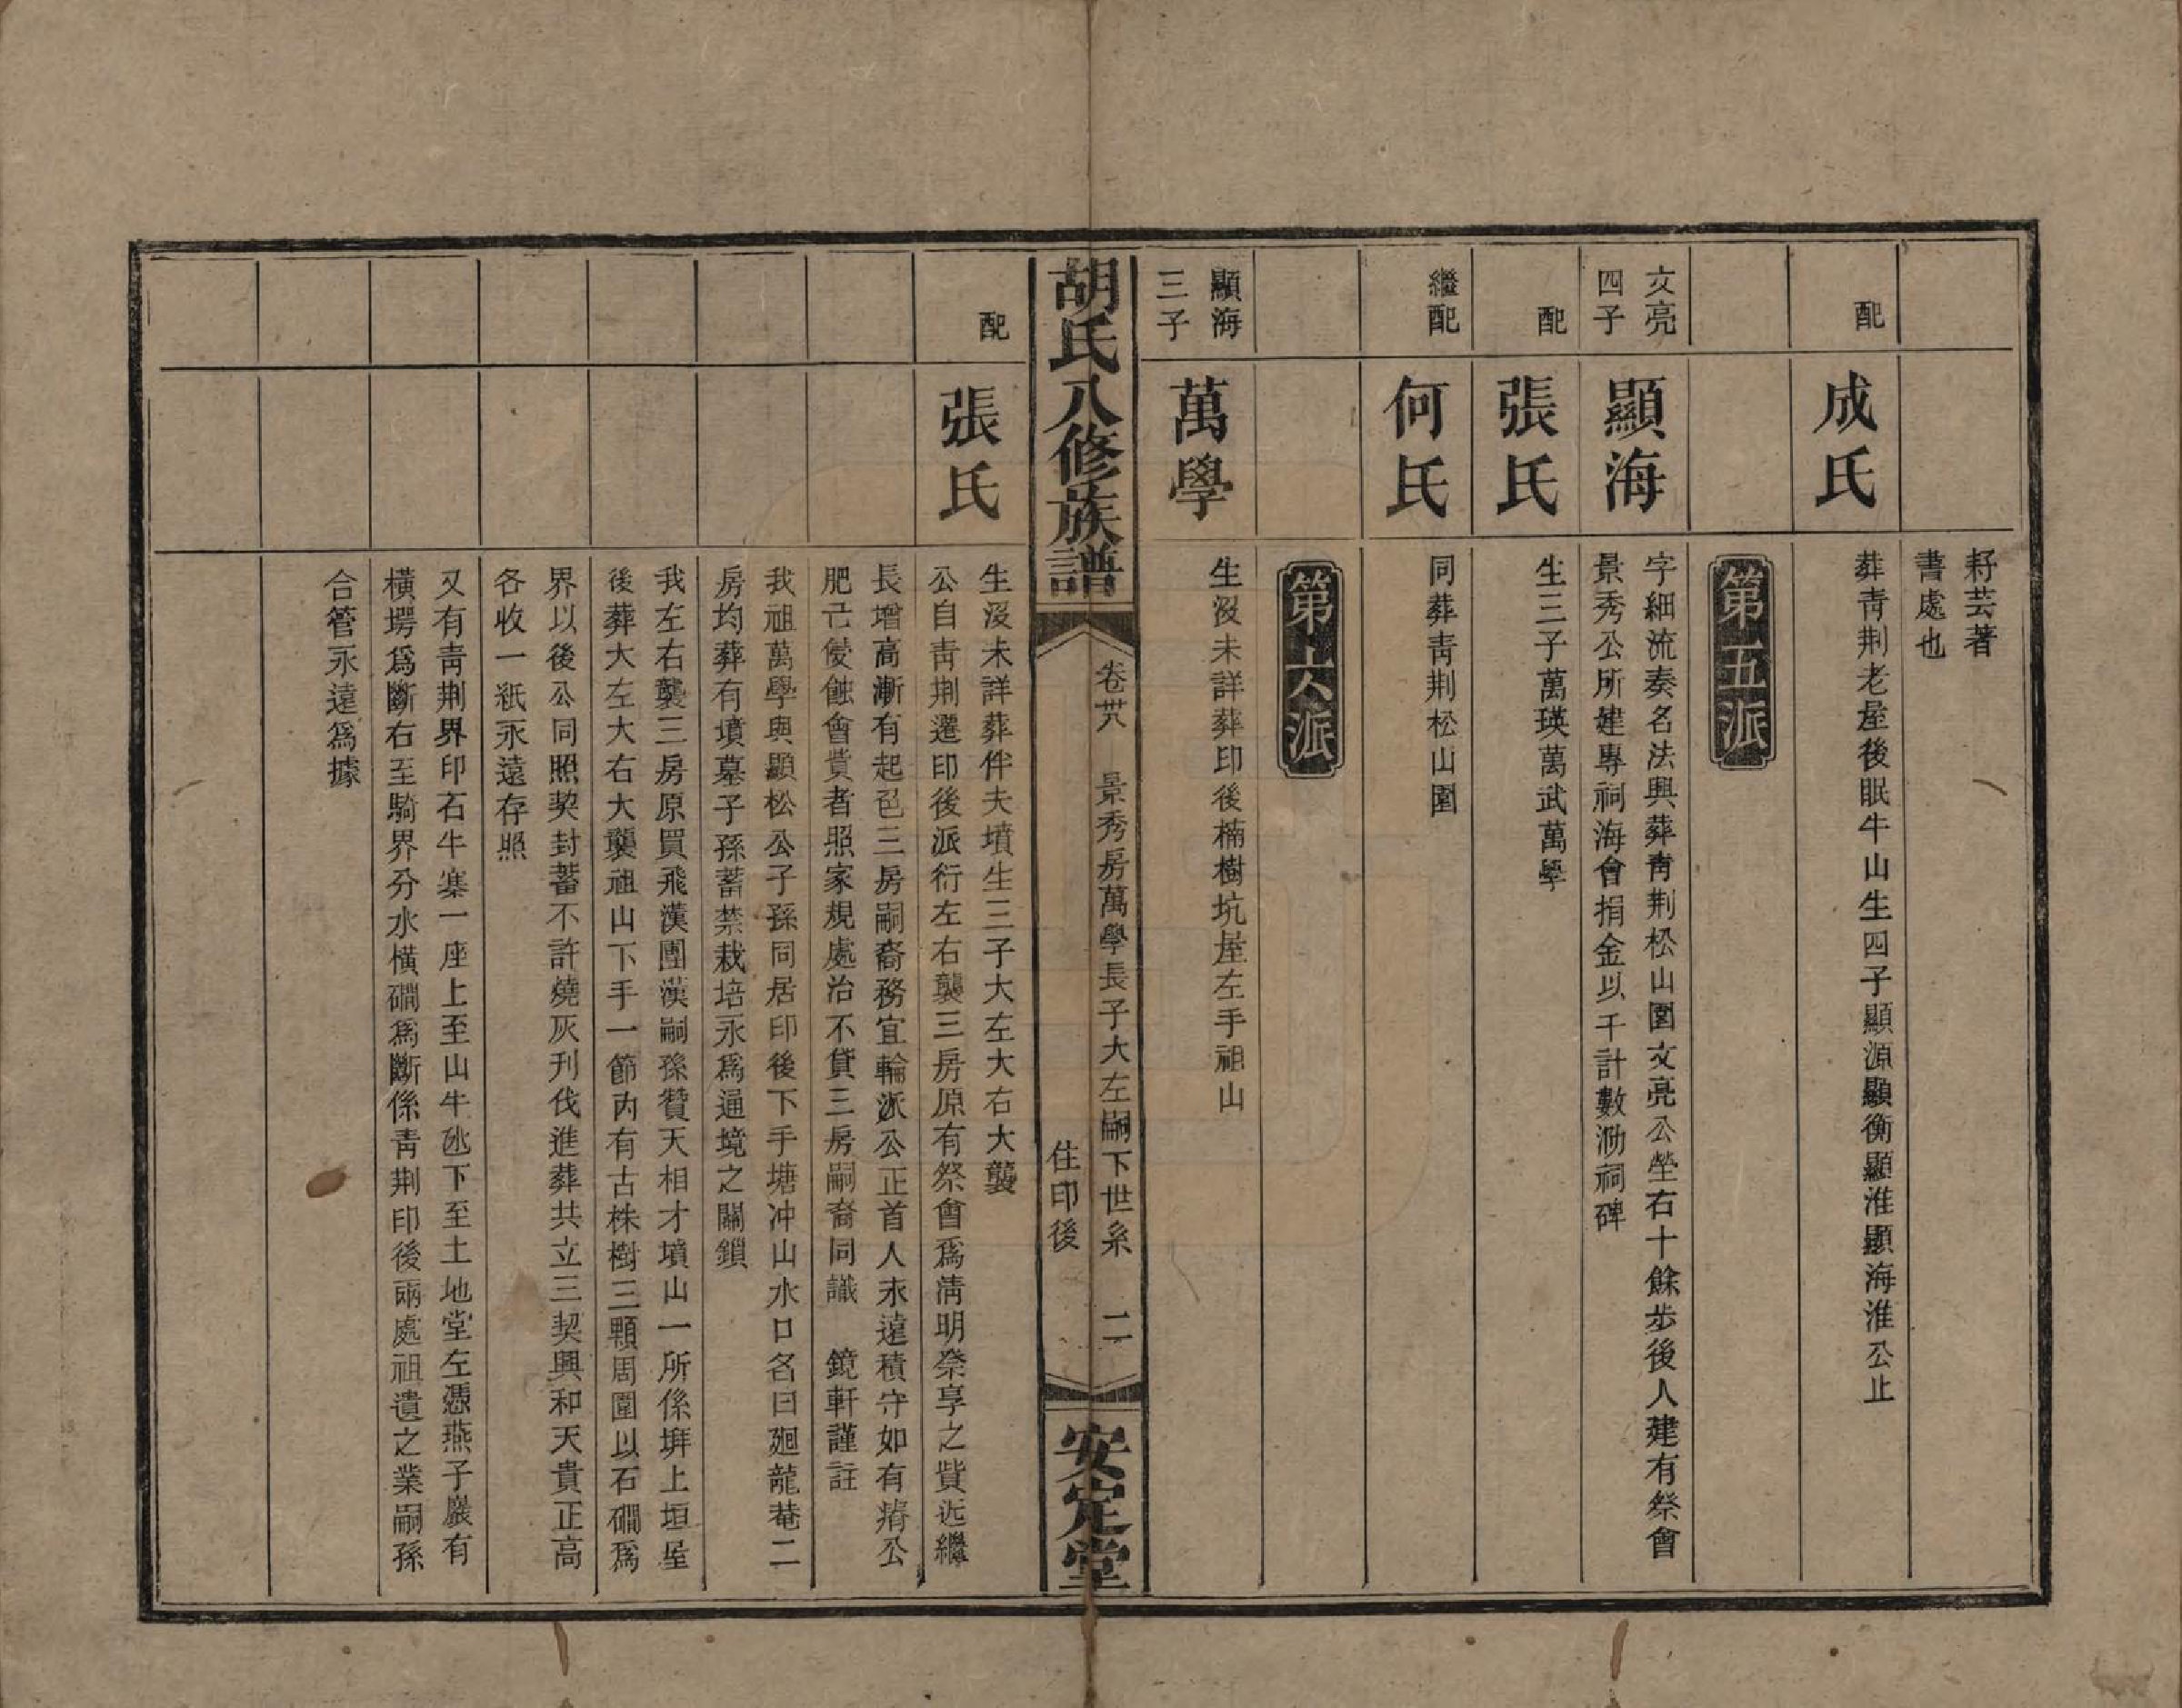 耔芸著
書處也
配
成氏
葬青荆老屋後眠牛山生四子顯源顯衡顯淮顯海淮公止
第五派
文亮
四子
顯海
字細流奏名法興葬青荆松山園文亮公塋右十餘步後人建有祭會
景秀公所建專祠海會捐金以千計數泐祠碑
配
張氏
生三子萬瑛萬武萬學
繼配
何氏
同葬青荆松山園
第六派
顯海
三子
萬學
生沒未詳葬印後楠樹坑屋左手祖山
胡氏八修族譜
卷卅八
景秀房萬學長子大左嗣下世系
二
住印後
安定堂
配
張氏
生沒未詳葬伴夫墳生三子大左大右大襲
公自青荆遷印後派衍左右襲三房原有祭會爲清明祭享之貲近繼
長增高漸有起色三房嗣裔務宜輪派公正首人永遠積守如有瘠公
肥己侵蝕會貲者照家規處治不貸三房嗣裔同識　鏡軒謹註
我祖萬學與顯松公子孫同居印後下手塘冲山水口名曰廻龍菴二
房均葬有墳墓子孫蓄禁栽培永爲逼境之關鎖
我左右襲三房原買飛漢團漢嗣孫贊天相才墳山一所係塀上垣垕
後葬大左大右大襲祖山下手一節内有古株樹三顆周圍以石磵爲
界以後公同照契封蓄不許燒灰刊伐進葬共立三契興和天貴正高
各收一紙永遠存照
又有青荆界印石牛寨一座上至山牛氹下至土地堂左憑燕子巖有
横堮爲斷右至騎界分水横磵爲斷係青荆印後兩處祖遺之業嗣孫
合管永遠爲據